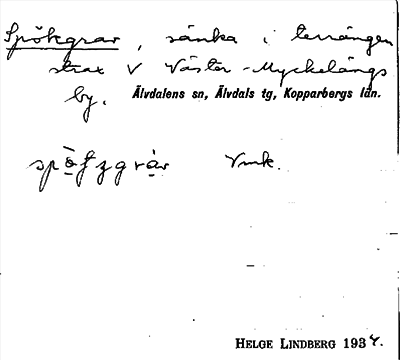 Spökgrav, sänka i terrängen
strax V Väster-Myckelängs
by. Älvdalens sn, Älvdals tg, Kopparbergs län.
Vmk.
HELGE LINDBERG 1934.